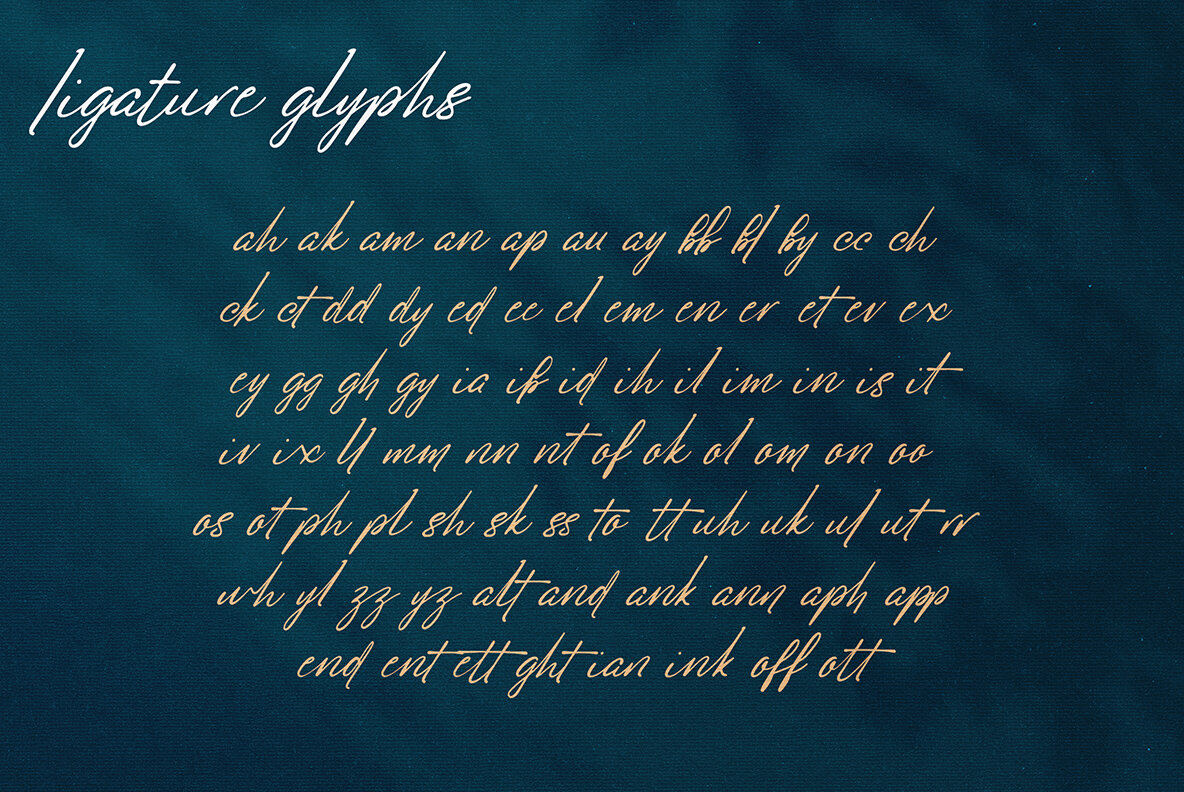 ligature glyphs
ah ak am an ap au ay bb bl by cc ch
ck ct dd dy ed ee el em en er et ev ex
ey gg gh gy ia ib id ih il im in is it
iv ix ll mm nn nt of ok ol om on oo
os ot ph pl sh sk ss to tt uh uk ul ut vv
wh yl zz yz alt and ank ann aph app
end ent ett ght ian ink off ott